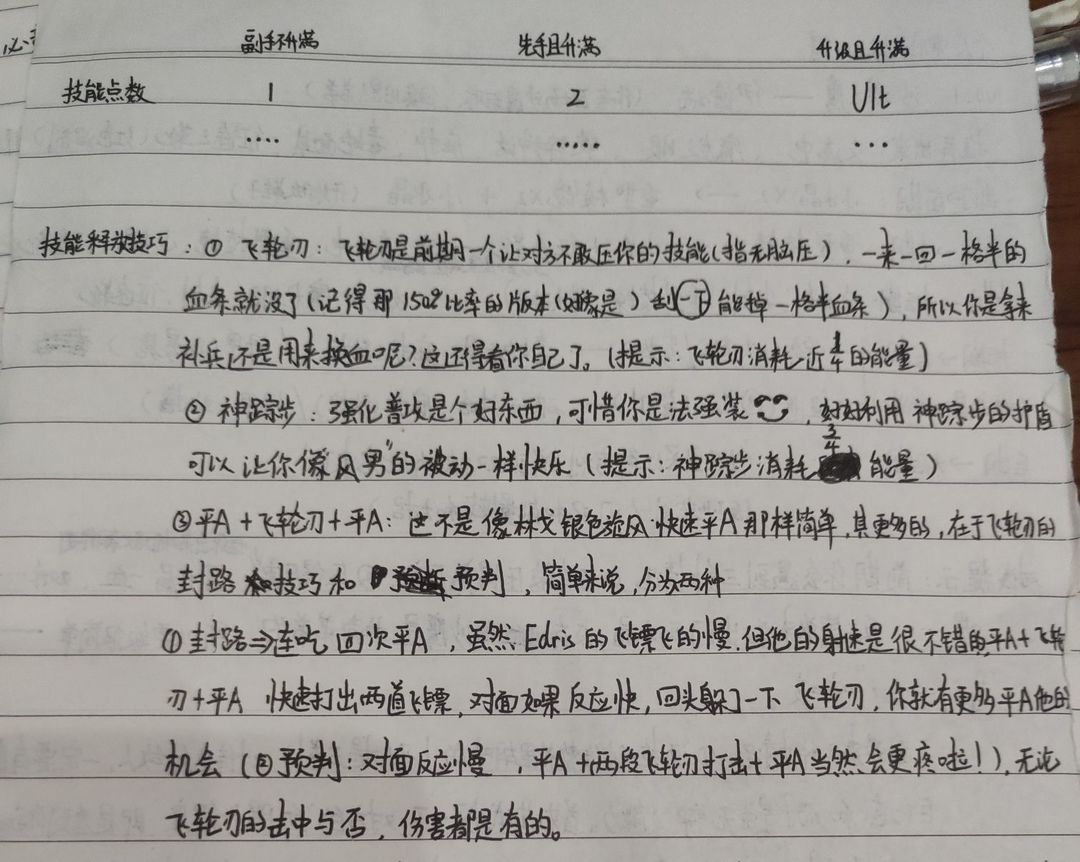 副手不升满 先手且升满 升级且升满
技能点数 1 2 Ult
.... ..... ...
技能释放技巧：① 飞轮刃：飞轮刃是前期一个让对方不敢压你的技能(指无脑压)，一来一回一格半的
血条就没了(记得那150%比率的版本(好像是)刮一下能掉一格半血条)，所以你是拿来
补兵还是用来换血呢？这还得看你自己了。(提示：飞轮刃消耗近1/4的能量)
② 神踪步：强化普攻是个好东西，可惜你是法强装，好好利用神踪步的护盾
可以让你像风男"的被动一样快乐(提示：神踪步消耗3/4能量)
③平A+飞轮刃+平A：这不是像林戈银色旋风快速平A那样简单，其更多的，在于飞轮刃的
封路技巧和预判，简单来说，分为两种
①封路⇒连吃四次平A，虽然Edris的飞镖飞的慢.但他的射速是很不错的平A+飞轮
刃+平A 快速打出两道飞镖，对面如果反应快，回头躲了一下飞轮刃，你就有更多平A他的
机会(②预判：对面反应慢，平A+两段飞轮刃打击+平A当然会更疼啦！)，无论
飞轮刃的击中与否，伤害都是有的。